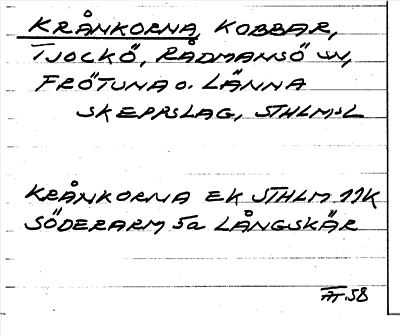 KRÅNKORNA, KOBBAR,
TJOCKÖ, RÅDMANSÖ SN,
FRÖTUNA O. LÄNNA
SKEPPSLAG, STHLMS L
KRÅNKORNA EK STHLM 11K
SÖDERARM 5a LÅNGSKÄR
AT.58